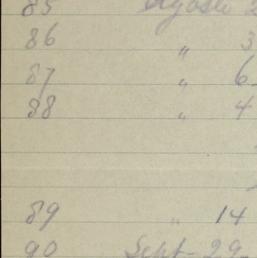 85 Agosto 2
86 " 3
87 " 6
88 " 4
89 " 14
90 Sept- 29